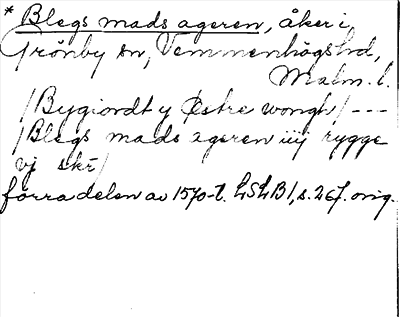 * Blegs mads ageren, åker i
Grönby sn, Vemmenhögs hd,
Malm. l.
/Bygiordt y Østre wongh/ ---
/Blegs mads ageren iiij rygge
vj skr/
förra delen av 1570-t. LSLB 1, s. 267. orig.